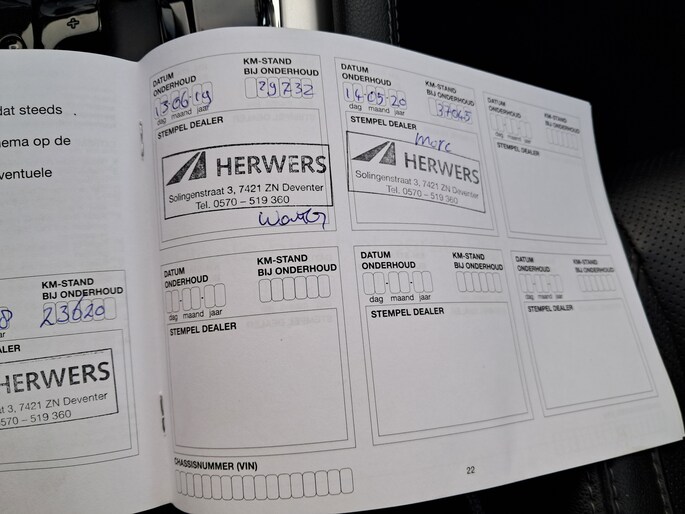 dat steeds
ema op de
ventuele
KM-STAND
BIJ ONDERHOUD
8
23620
ar
ALER
HERWERS
at 3, 7421 ZN Deventer
0570 – 519 360
DATUM
ONDERHOUD
KM-STAND
BIJ ONDERHOUD
13-06-19
29732
dag maand jaar
STEMPEL DEALER
HERWERS
Solingenstraat 3, 7421 ZN Deventer
Tel. 0570 – 519 360
DATUM
ONDERHOUD
KM-STAND
BIJ ONDERHOUD
14-05-20
37045
dag maand jaar
STEMPEL DEALER
marc
HERWERS
Solingenstraat 3, 7421 ZN Deventer
Tel. 0570 – 519 360
DATUM
ONDERHOUD
KM-STAND
BIJ ONDERHOUD
dag maand jaar
STEMPEL DEALER
DATUM
ONDERHOUD
KM-STAND
BIJ ONDERHOUD
dag maand jaar
STEMPEL DEALER
DATUM
ONDERHOUD
KM-STAND
BIJ ONDERHOUD
dag maand jaar
STEMPEL DEALER
DATUM
ONDERHOUD
KM-STAND
BIJ ONDERHOUD
dag maand jaar
STEMPEL DEALER
CHASSISNUMMER (VIN)
22